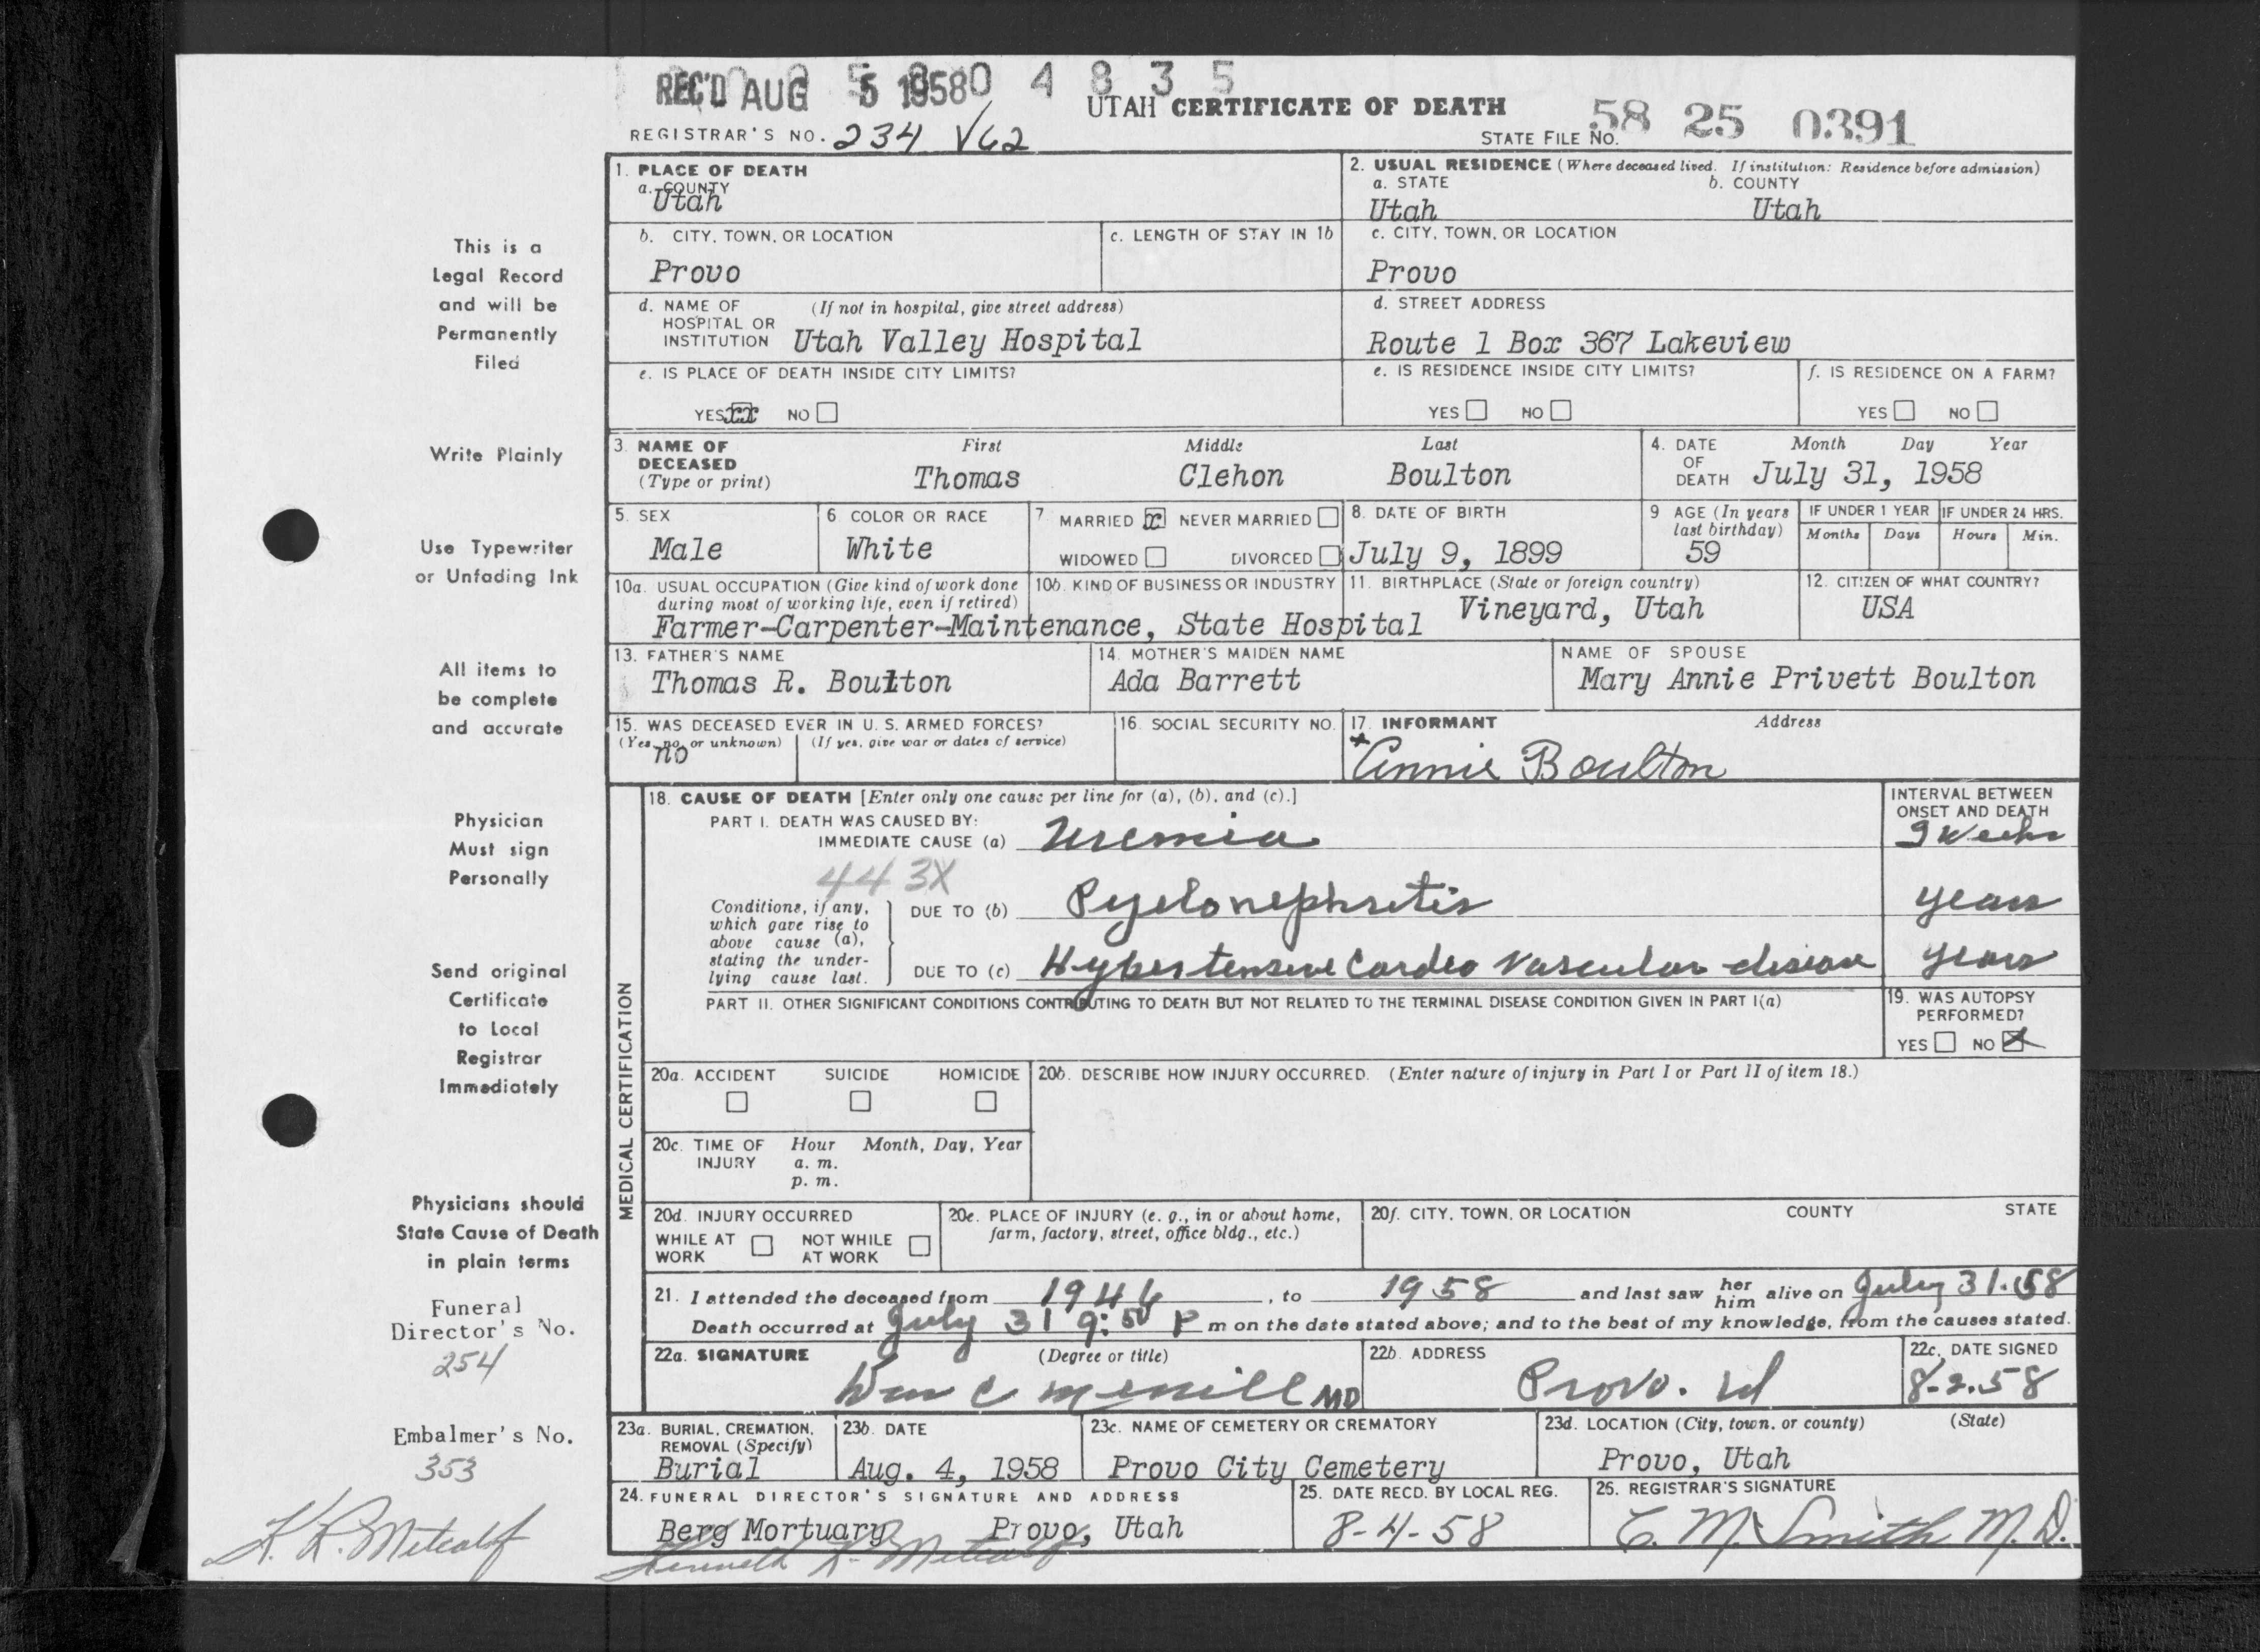 REC'D AUG 5 1958 0 4 8 3 5
UTAH CERTIFICATE OF DEATH
REGISTRAR'S NO. 234 V62
STATE FILE NO. 58 25 0391
1. PLACE OF DEATH
a. COUNTY
Utah
2. USUAL RESIDENCE (Where deceased lived. If institution: Residence before admission)
a. STATE b. COUNTY
Utah Utah
b. CITY, TOWN, OR LOCATION
Provo
c. LENGTH OF STAY IN 1b
c. CITY, TOWN, OR LOCATION
Provo
d. NAME OF (If not in hospital, give street address)
HOSPITAL OR
INSTITUTION Utah Valley Hospital
d. STREET ADDRESS
Route 1 Box 367 Lakeview
e. IS PLACE OF DEATH INSIDE CITY LIMITS?
YES xx NO
e. IS RESIDENCE INSIDE CITY LIMITS?
YES NO
f. IS RESIDENCE ON A FARM?
YES NO
3. NAME OF First Middle Last
DECEASED
(Type or print) Thomas Clehon Boulton
4. DATE Month Day Year
OF
DEATH July 31, 1958
5. SEX
Male
6 COLOR OR RACE
White
7 MARRIED x NEVER MARRIED
WIDOWED DIVORCED
8. DATE OF BIRTH
July 9, 1899
9 AGE (In years
last birthday)
59
IF UNDER 1 YEAR IF UNDER 24 HRS.
Months Days Hours Min.
10a. USUAL OCCUPATION (Give kind of work done
during most of working life, even if retired)
10b. KIND OF BUSINESS OR INDUSTRY
Farmer-Carpenter-Maintenance, State Hospital
11. BIRTHPLACE (State or foreign country)
Vineyard, Utah
12. CITIZEN OF WHAT COUNTRY?
USA
13. FATHER'S NAME
Thomas R. Boulton
14. MOTHER'S MAIDEN NAME
Ada Barrett
NAME OF SPOUSE
Mary Annie Privett Boulton
15. WAS DECEASED EVER IN U. S. ARMED FORCES?
(Yes, no, or unknown) (If yes, give war or dates of service)
no
16. SOCIAL SECURITY NO.
17. INFORMANT Address
x Annie Boulton
MEDICAL CERTIFICATION
18. CAUSE OF DEATH [Enter only one cause per line for (a), (b), and (c).]
INTERVAL BETWEEN
ONSET AND DEATH
PART I. DEATH WAS CAUSED BY:
IMMEDIATE CAUSE (a) Uremia Weeks
443X
Conditions, if any,
which gave rise to
above cause (a),
stating the under-
lying cause last.
DUE TO (b) Pyelonephritis years
DUE TO (c) Hypertensive Cardeo Vascular disease years
PART II. OTHER SIGNIFICANT CONDITIONS CONTRIBUTING TO DEATH BUT NOT RELATED TO THE TERMINAL DISEASE CONDITION GIVEN IN PART I(a)
19. WAS AUTOPSY
PERFORMED?
YES NO X
20a. ACCIDENT SUICIDE HOMICIDE
20b. DESCRIBE HOW INJURY OCCURRED. (Enter nature of injury in Part I or Part II of item 18.)
20c. TIME OF Hour Month, Day, Year
INJURY a. m.
p. m.
20d. INJURY OCCURRED
WHILE AT NOT WHILE
WORK AT WORK
20e. PLACE OF INJURY (e. g., in or about home,
farm, factory, street, office bldg., etc.)
20f. CITY, TOWN, OR LOCATION COUNTY STATE
21. I attended the deceased from 1946, to 1958 and last saw her him alive on July 31. 58
Death occurred at July 31 9:50 P m on the date stated above; and to the best of my knowledge, from the causes stated.
22a. SIGNATURE (Degree or title)
Wm C Merrill MD
22b. ADDRESS
Provo.
22c. DATE SIGNED
8-2-58
23a. BURIAL, CREMATION,
REMOVAL (Specify)
Burial
23b. DATE
Aug. 4, 1958
23c. NAME OF CEMETERY OR CREMATORY
Provo City Cemetery
23d. LOCATION (City, town, or county) (State)
Provo, Utah
24. FUNERAL DIRECTOR'S SIGNATURE AND ADDRESS
Berg Mortuary Provo, Utah
Kenneth R. Metcalf
25. DATE RECD. BY LOCAL REG.
8-4-58
26. REGISTRAR'S SIGNATURE
C. M. Smith M.D.
This is a
Legal Record
and will be
Permanently
Filed
Write Plainly
Use Typewriter
or Unfading Ink
All items to
be complete
and accurate
Physician
Must sign
Personally
Send original
Certificate
to Local
Registrar
Immediately
Physicians should
State Cause of Death
in plain terms
Funeral
Director's No.
254
Embalmer's No.
353
K. R. Metcalf